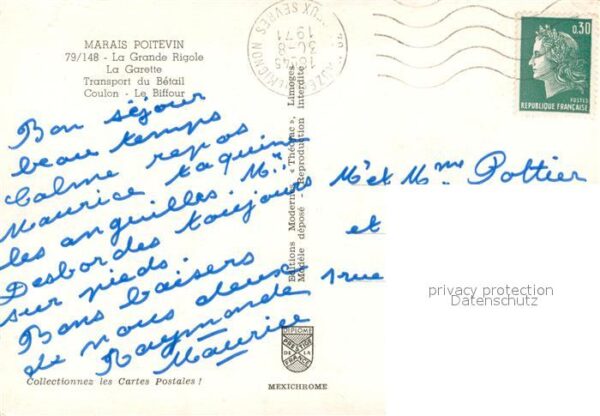 MARAIS POITEVIN
79/148 - La Grande Rigole
La Garette
Transport du Bétail
Coulon - Le Biffour
Bon séjour
beau temps
Calme repos
Maurice taquine
les anguilles. Mr
Desbordes toujours
sur pieds.
Bons baisers
de nous deux
Raymonde
Maurice
Collectionnez les Cartes Postales !
Editions Modernes « Théojac », Limoges
Modèle déposé - Reproduction Interdite
DIPLOME
PRESTIGE
DE LA
FRANCE
MEXICHROME
18H45
30-8
1971
DEUX SEVRES
0,30
POSTES
REPUBLIQUE FRANÇAISE
Mr et Mme Pottier
et
1 rue
privacy protection
Datenschutz